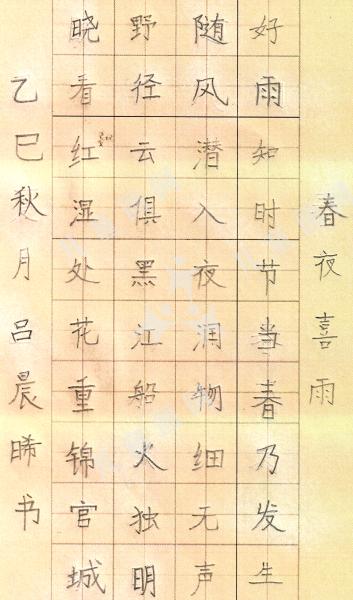 春夜喜雨
好雨知时节当春乃发生
随风潜入夜润物细无声
野径云俱黑江船火独明
晓看红湿处花重锦官城
乙巳秋月吕晨晞书